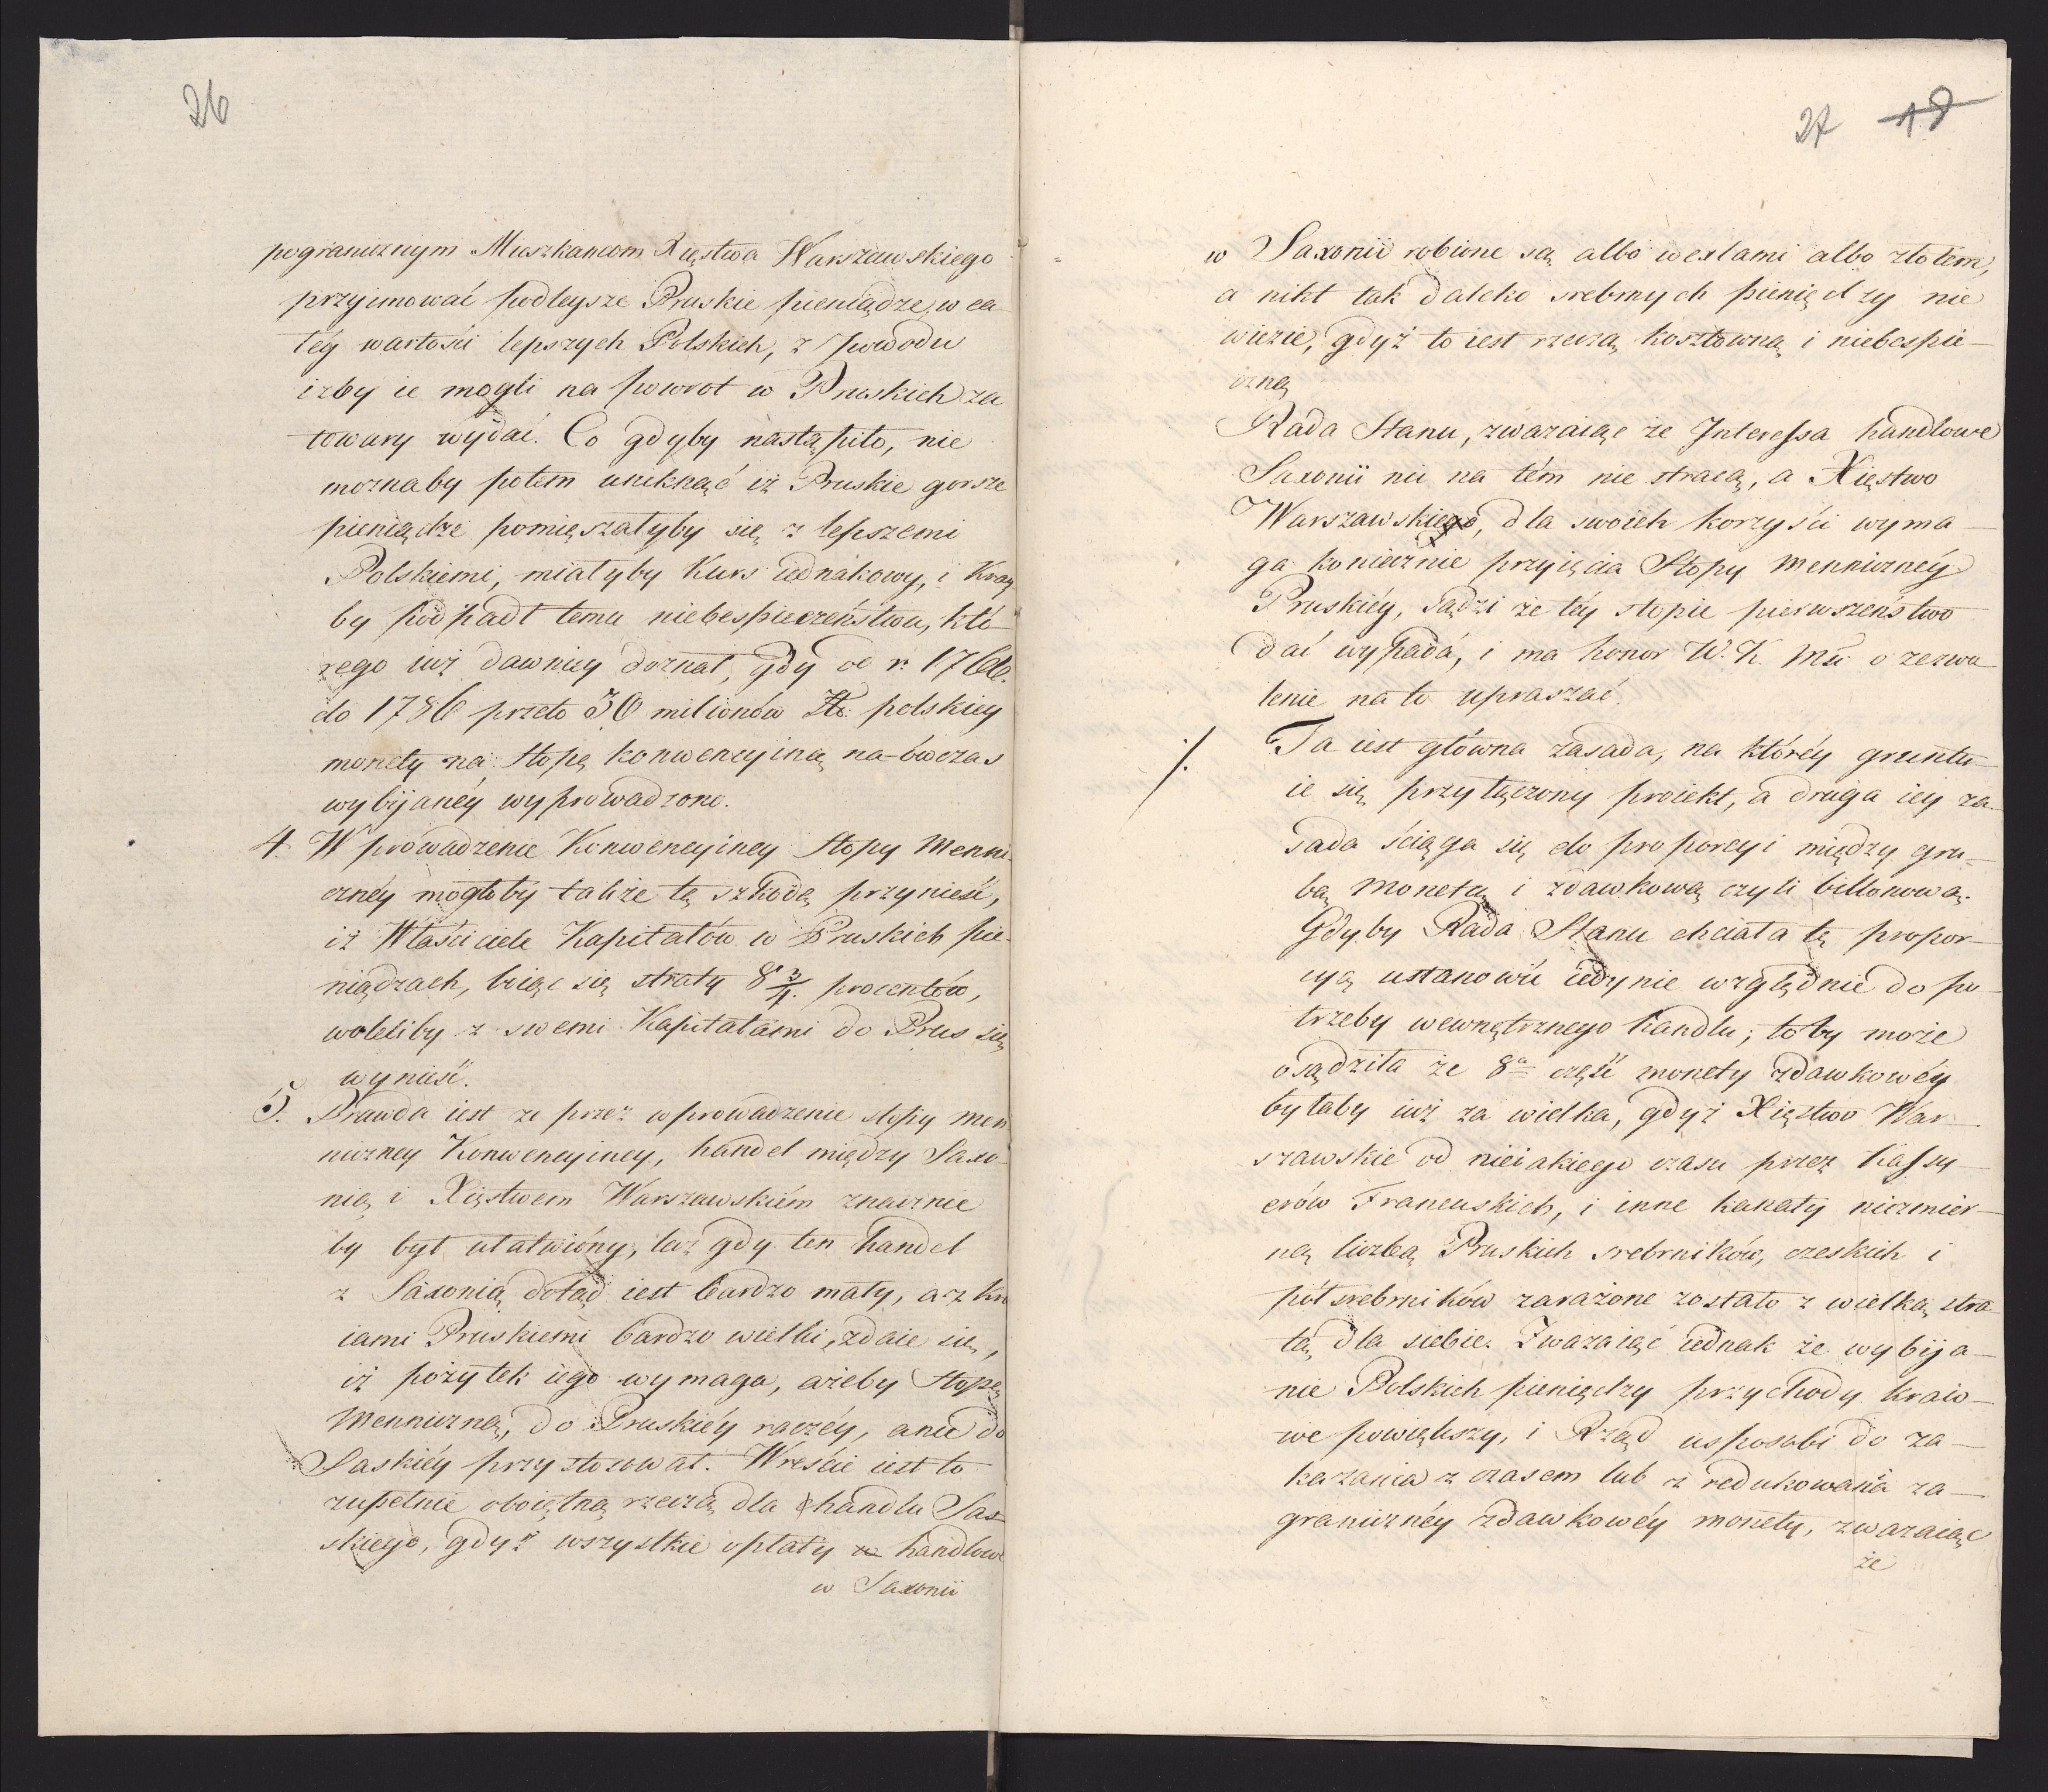 26
pogranicznym Mieszkancom Xięstwa Warszawskiego
przyimować podleysze Pruskie pieniądze, w ca-
łéy wartości lepszych Polskich, z powodu
iżby ie mogli na powrot w Pruskich za
towary wydać. Co gdyby nastąpiło, nie
moznaby potem uniknąć iż Pruskie gorsze
pieniądze pomięszałyby się z lepszemi
Polskiemi, miałyby Kurs iednakowy, i Kray
by podpadł temu niebespieczeństwu, któ-
rego iuż dawniey doznał, gdy od r. 1766.
do 1786 przeto 30 milionów Złt: polskiey
monety na stopę konwencyiną na-ówczas
wybijanéy wyprowadzono.
4. Wprowadzenie Konwencyiney Stopy Menni-
cznéy mogłoby także tę szkodę przynieść,
iż Właściciele Kapitałów w Pruskich pie-
niądzach, boiąc się straty 8 3/4. procentów,
woleliby z swemi Kapitałami do Prus się
wynieść.
5. Prawda iest że przez wprowadzenie stopy men
niczney Konwencyiney, handel między Saxo-
nią i Xięstwem Warszawskiém znacznie
by był ułatwióny, lecz gdy ten handel
z Saxonią dotąd iest bardzo mały, a z Kra
iami Pruskiemi bardzo wielki, zdaie się,
iż pożytek iego wymaga, ażeby Stopę
Menniczną, do Pruskiéy raczéy, anie do
Saskiéy przystosował. Wreście iest to
zupełnie oboiętną rzeczą dla handlu Sas-
skiego, gdyż wszystkie opłaty w handlowe
w Saxonii
27 19
w Saxonii robione są albo wexlami albo złotem,
a nikt tak daleko srebrnych pieniędzy nie
wiezie, gdyż to iest rzeczą kosztowną i niebespie-
czną
Rada Stanu, zważaiąc że Interessa handlowe
Saxonii nic na tém nie stracą, a Xięstwo
Warszawskiego, dla swoich korzyści wyma-
ga koniecznie przyięcia Stopy Mennicznéy
Pruskiéy, sądzi że téy stopie pierwszeństwo
dać wypadá, i ma honor W. K. Mći o zezwo
lenie na to upraszać.
/. Ta iest główna zasada, na któréy gruntu-
ie się przyłączony proiekt, a druga iey za-
sada ściąga się do proporcyi między gru-
bą monetą i zdawkową czyli billonową.
Gdyby Rada Stanu chciała tę propor-
cyą ustanowić iedynie względnie do po-
trzeby wewnętrznego handlu; toby może
osądziła że 8a część monety zdawkowéy
byłaby iuż za wielka, gdyż Xięstwo War-
szawskie od nieiakiego czasu przez Kassy-
erów Francuskich, i inne kanały niezmier-
ną liczbą Pruskich srebrników, czeskich i
półsrebrników zarażone zostało z wielką stra-
tą dla siebie. Zważaiąc iednak że wybija-
nie Polskich pieniędzy przychody kraio-
we powiększy, i Rząd usposobi do za-
kazania z czasem lub z redukowania za-
granicznéy zdawkowéy monety, zważaiąc
że